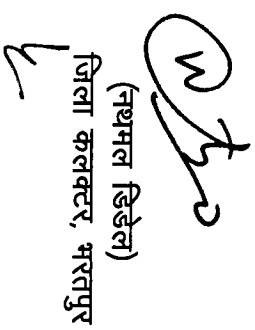 (नथमल डिडेल)
जिला कलक्टर, भरतपुर